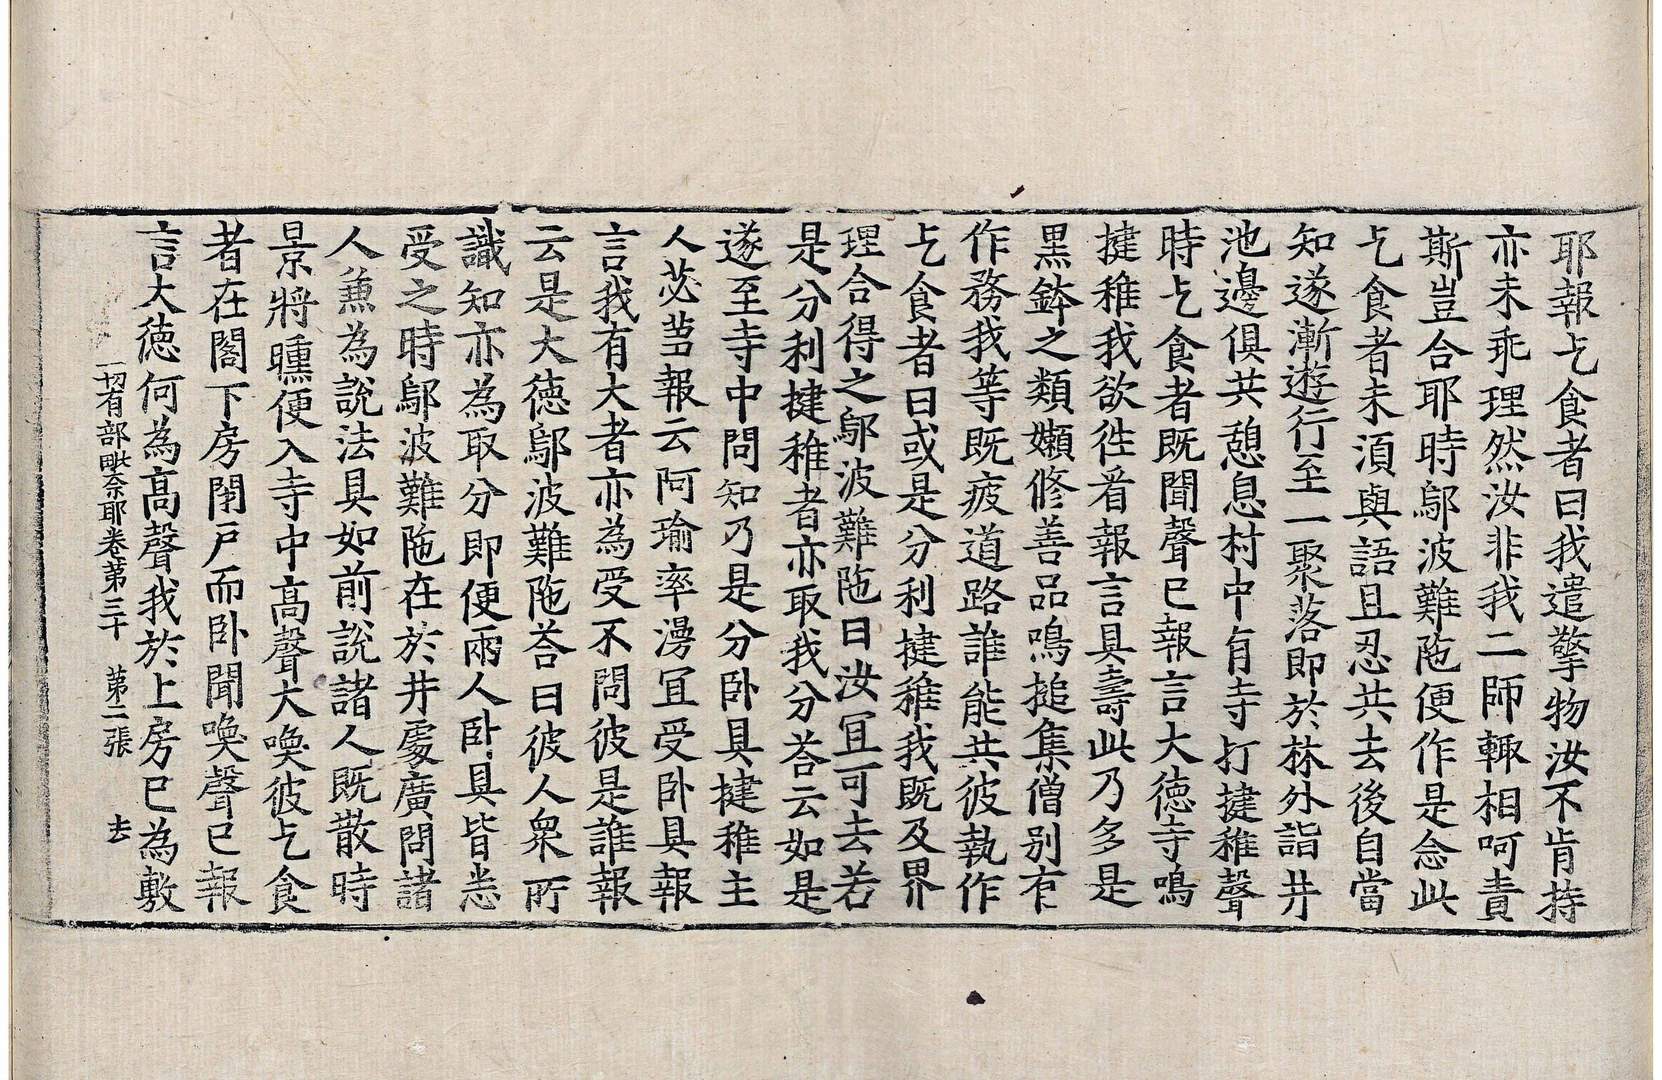 耶報乞食者曰我遣擎物汝不肯持
亦未乖理然汝非我二師輙相呵責
斯豈合耶時鄔波難陁便作是念此
乞食者未湏與語且忍共去後自當
知遂漸遊行至一聚落即於林外詣井
池邊俱共憩息村中有寺打揵稚聲
時乞食者既聞聲已報言大德寺鳴
揵稚我欲徃看報言具壽此乃多是
黒鉢之類嬾修善品鳴搥集僧別有
作務我等既疲道路誰能共彼執作
乞食者曰或是分利揵稚我既及界
理合得之鄔波難陁曰汝冝可去若
是分利揵稚者亦取我分荅云如是
遂至寺中問知乃是分卧具揵稚主
人苾蒭報云阿瑜率漫冝受卧具報
言我有大者亦為受不問彼是誰報
云是大德鄔波難陁荅曰彼人衆所
識知亦為取分即便兩人卧具皆悉
受之時鄔波難陁在於井處廣問諸
人兼為說法具如前說諸人既散時
景將曛便入寺中高聲大喚彼乞食
者在閣下房閉戸而卧聞喚聲已報
言大德何為高聲我於上房已為敷
一切有部毗奈耶卷第三十　第二張　去